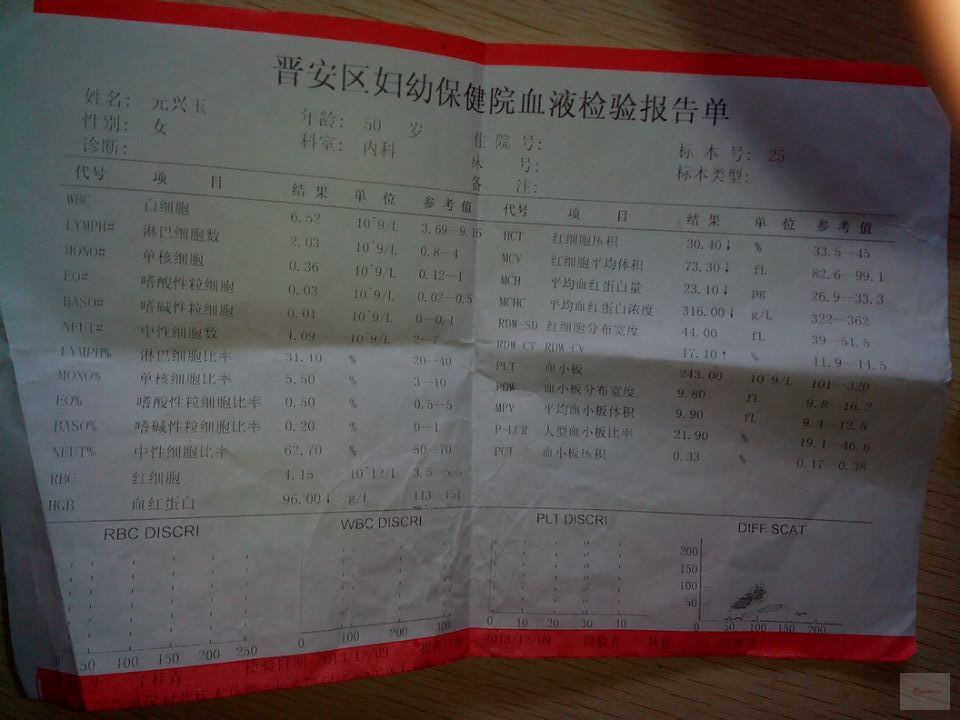 晋安区妇幼保健院血液检验报告单
姓名: 元兴玉 年龄: 50 岁 住院号: 标本号: 25
性别: 女 科室: 内科 床 号: 标本类型:
诊断: 备 注:
代号 项 目 结果 单位 参考值
WBC 白细胞 6.52 10^9/L 3.69--9.16
LYMPH# 淋巴细胞数 2.03 10^9/L 0.8--4
MONO# 单核细胞 0.36 10^9/L 0.12--1
EO# 嗜酸性粒细胞 0.03 10^9/L 0.02--0.5
BASO# 嗜碱性粒细胞 0.01 10^9/L 0--0.1
NEUT# 中性细胞数 4.09 10^9/L 2--7
LYMPH% 淋巴细胞比率 31.10 % 20--40
MONO% 单核细胞比率 5.50 % 3--10
EO% 嗜酸性粒细胞比率 0.50 % 0.5--5
BASO% 嗜碱性粒细胞比率 0.20 % 0--1
NEUT% 中性细胞比率 62.70 % 50--70
RBC 红细胞 4.15 10^12/L 3.5--5.5
HGB 血红蛋白 96.00↓ g/L 113--151
代号 项 目 结果 单位 参考值
HCT 红细胞压积 30.40↓ % 33.5--45
MCV 红细胞平均体积 73.30↓ fL 82.6--99.1
MCH 平均血红蛋白量 23.10↓ pg 26.9--33.3
MCHC 平均血红蛋白浓度 316.00↓ g/L 322--362
RDW-SD 红细胞分布宽度 44.00 fL 39--51.5
RDW-CV RDW-CV 17.10↑ % 11.9--14.5
PLT 血小板 243.00 10^9/L 101--320
PDW 血小板分布宽度 9.80 fL 9.8--16.2
MPV 平均血小板体积 9.90 fL 9.4--12.5
P-LCR 大型血小板比率 21.90 % 19.1--46.6
PCT 血小板压积 0.33 % 0.17--0.38
RBC DISCRI WBC DISCRI PLT DISCRI DIFF SCAT
200
150
100
50
0 50 100 150 200 250
0 100 200 300
0 10 20 30 40
0 50 100 150 200
检验日期 2013/12/09 2013/12/09 检验者